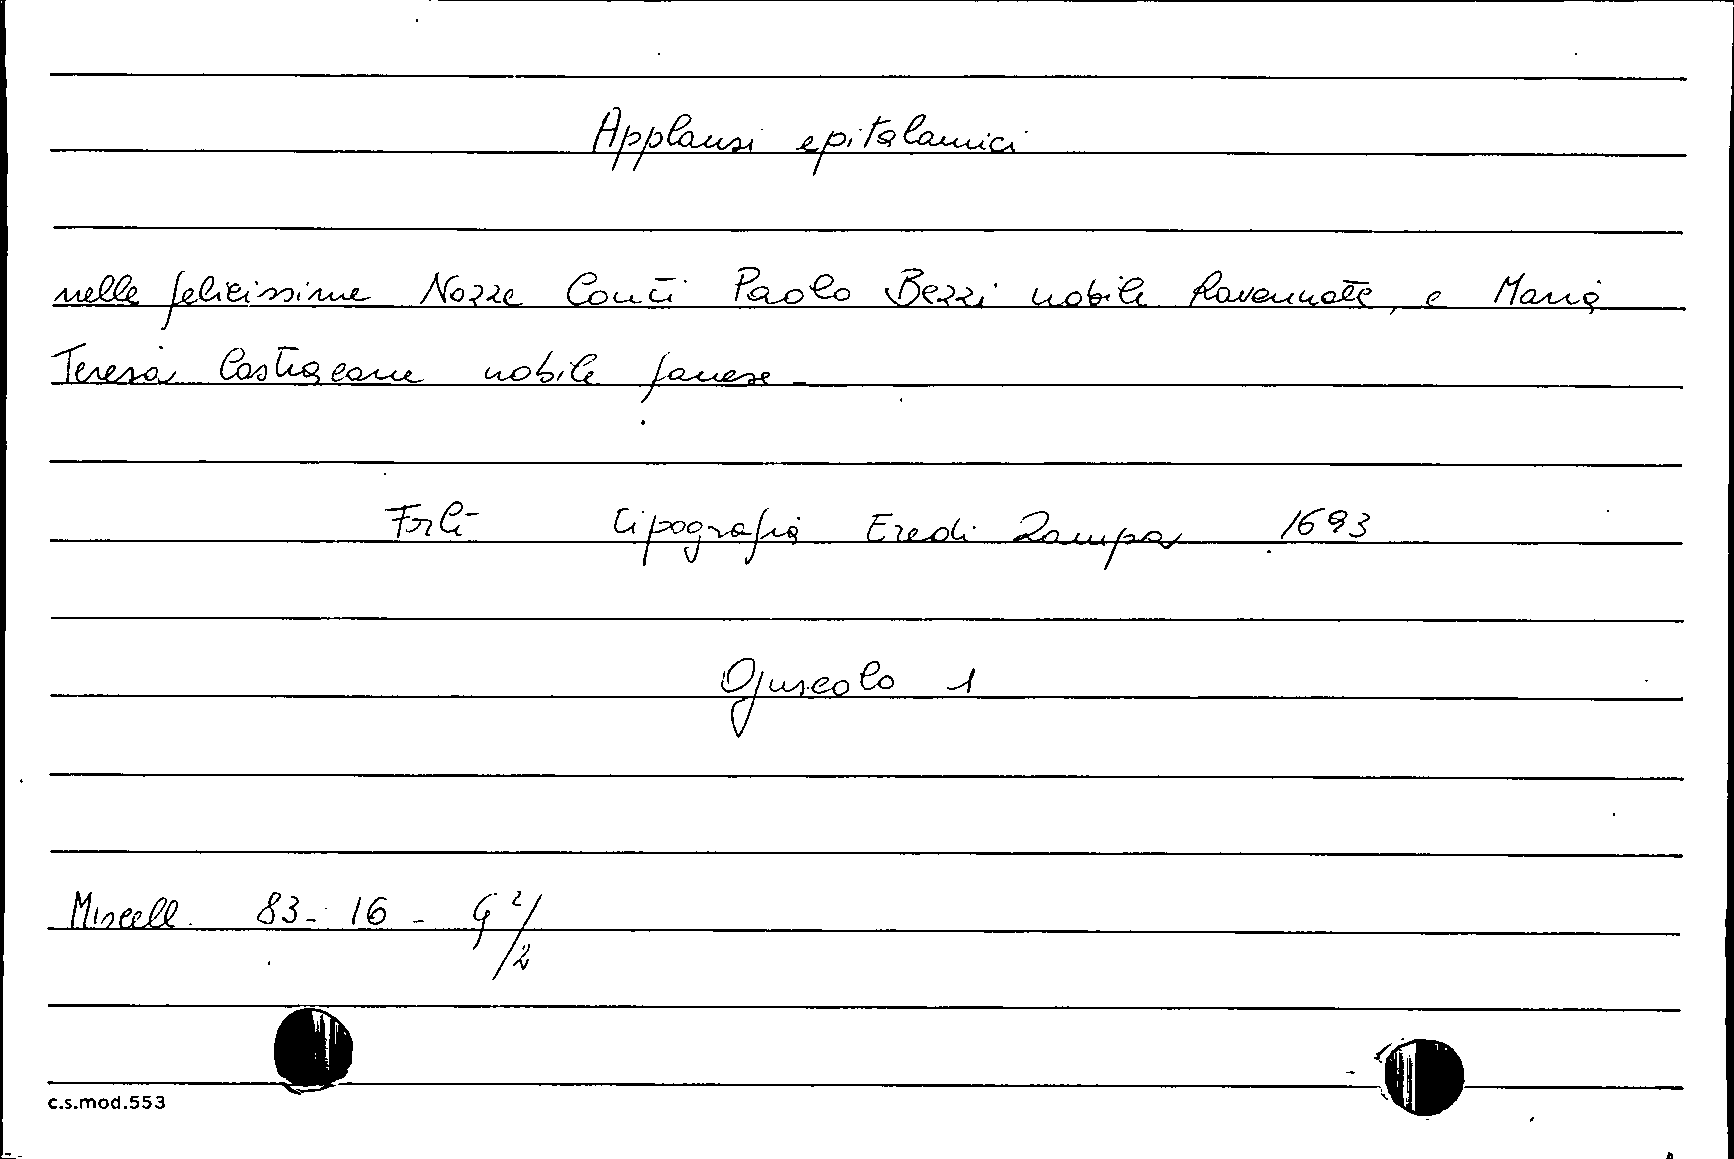 Applausi epitalamici
nelle felicissime Nozze Conti Paolo Bezzi nobile Ravennate, e Maria
Teresa Castracane nobile fanese
Forlì tipografia Eredi Zampa 1693
Opuscolo 1
Miscell. 83-16-G 2/2
c.s.mod.553